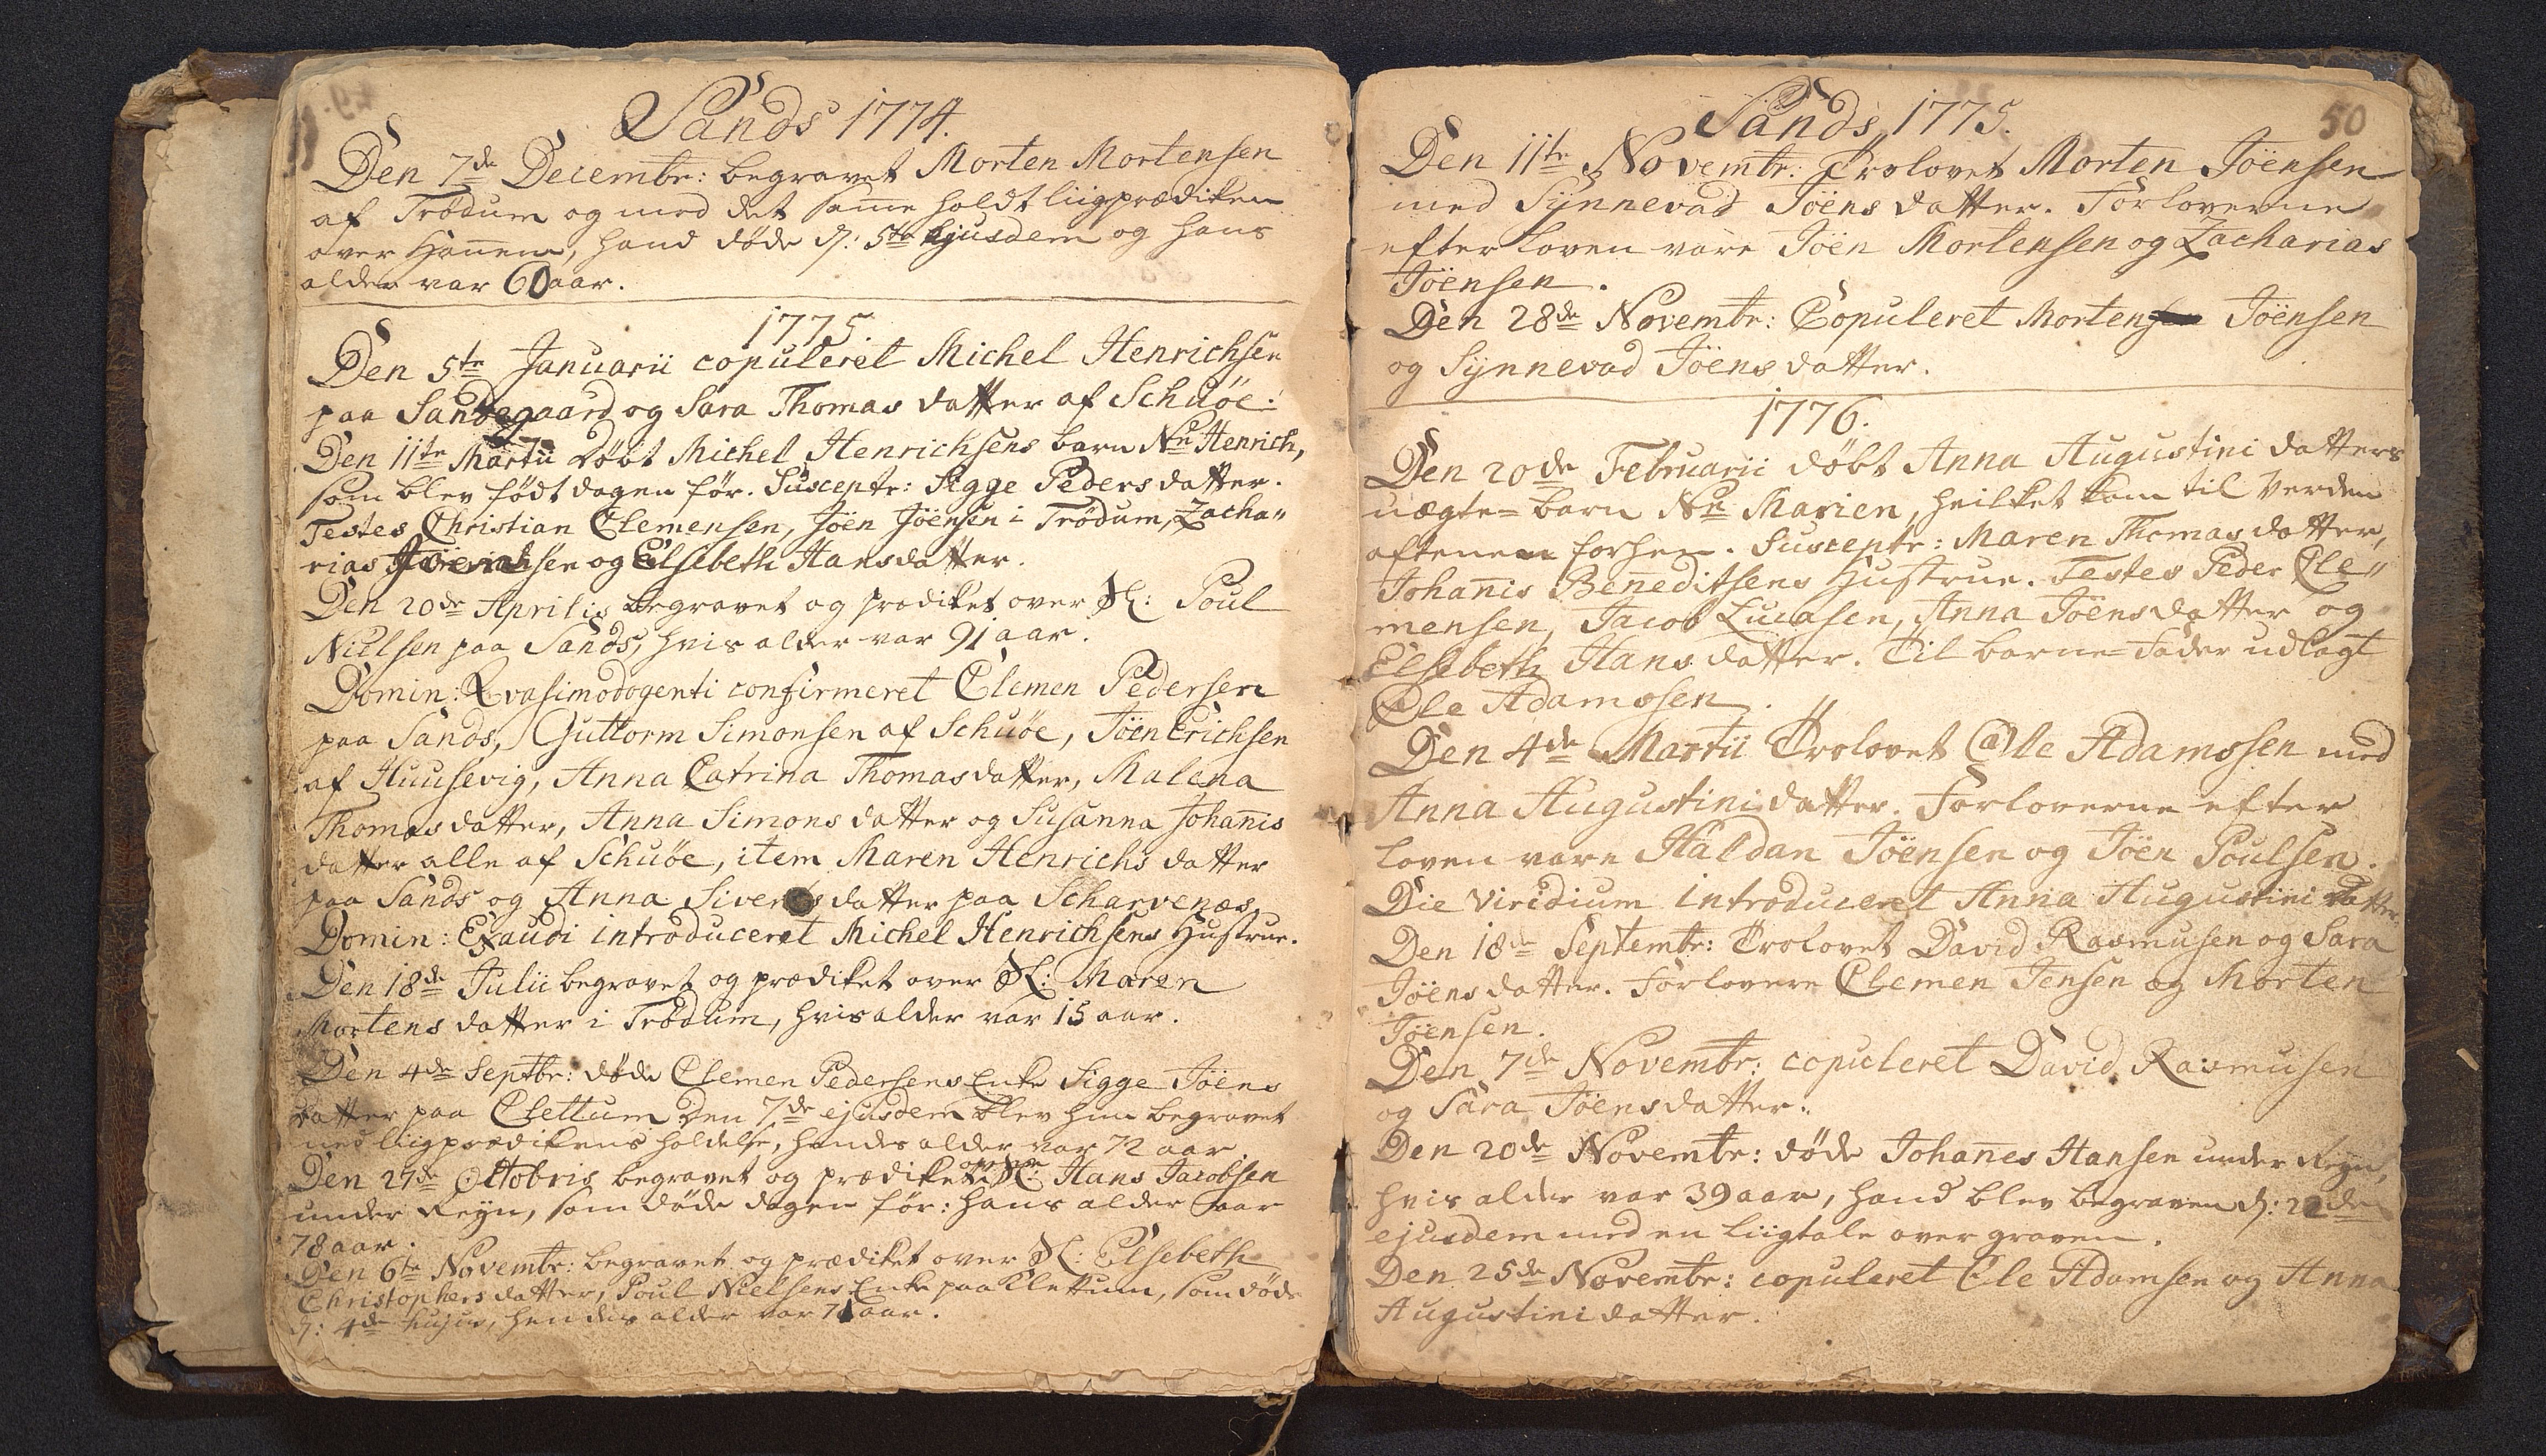 Sands 1774.
Den 7de Decembr: begravet Morten Mortensen
af Trødum og med det samme holdt liigprædiken
over Hannem, hand døde d: 5te ejusdem og hans
alder var 60 aar.
1775.
Den 5te Januarii copuleret Michel Henrichsen
paa Sandsgaard og Sara Thomas datter af Schuøe.
Den 11te Martii døbt Michel Henrichsens barn Nn Henrich,
som blev født dagen før. Susceptr: Sigge Peders datter.
Testes Christian Clemensen, Jöen Jöensen i Trödum, Zacha„
rias sen og Elsebeth Hansdatter.
Den 20de Aprilis begravet og prediket over Sl: Poul
Nielsen paa Sands, hvis alder var 91 aar.
Domin: Qvasimodogenti confirmeret Clemen Pedersen
paa Sands, Guttorm Simonsen af Schuöe, Jöen Erichsen
af Huusevig, Anna Catrina Thomasdatter, Malena
Thomasdatter, Anna Simons datter og Susanna Johanis
datter alle af Schuöe, item Maren Henrichs datter
paa Sands og Anna Siverts datter paa Scharvenæs.
Domin: Exaudi introduceret Michel Henrichsens Hustrue.
Den 18de Julii begravet og prædiket over Sl: Maren
Mortens datter i Trödum, hvis alder var 15 aar.
Den 4de Septbr: døde Clemen Pedersens Enke Sigge Jöens
datter paa Clettum den 7de ejusdem blev hun begravet
med liigprædikens holdelse, hendes alder var 72 aar.
Den 27de Octobris begravet og prædiket over Sl: Hans Jacobsen
under Reyn, som døde dagen før: hans alder var
78 aar.
Den 6te Novembr: begravet og prædiket over Sl: Elsebeth
Christophers datter, Poul Nielsens Enke paa Klettum, som døde
d: 4de hujus, hendes alder var 71 aar.
50
Sands 1775.
Den 11te Novembr: Trolovet Morten Jöensen
med Synnevad Jöens datter. Forloverne
efter loven vare Jöen Mortensen og Zacharias
Jöensen.
Den 28de Novembr: Copuleret Morten Jöensen
og Synnevad Jöens datter.
1776.
Den 20de Februarii döbt Anna Augustini datters
uægte=barn Nn Marien, hvilket kom til Verden
aftenen forhen. Susceptr: Maren Thomasdatter,
Johanis Beneditsens Hustrue. Testes Peder Cle„
mensen, Jacob Lucasen, Anna Jöensdatter og
Elsebeth Hans datter. Til barne=fader udlagt
Ole Adamssen.
Den 4de Martii Trolovet Ole Adamssen med
Anna Augustini datter. Forloverne efter
loven vare Haldan Jöensen og Jöen Poulsen.
Die viridium introduceret Anna Augustini datter.
Den 18de Septembr: Trolovet David Rasmusen og Sara
Jöens datter. Forlovere Clemen Jensen og Morten
Jöensen.
Den 7de Novembr: copuleret David Rasmusen
og Sara Jöensdatter.
Den 20de Novembr: døde Johanes Hansen under Reyn,
hvis alder var 39 aar, hand blev begraven d: 22de
ejusdem med en liigtale over graven.
Den 25de Novembr: copuleret Ole Adamsen og Anna
Augustini datter.